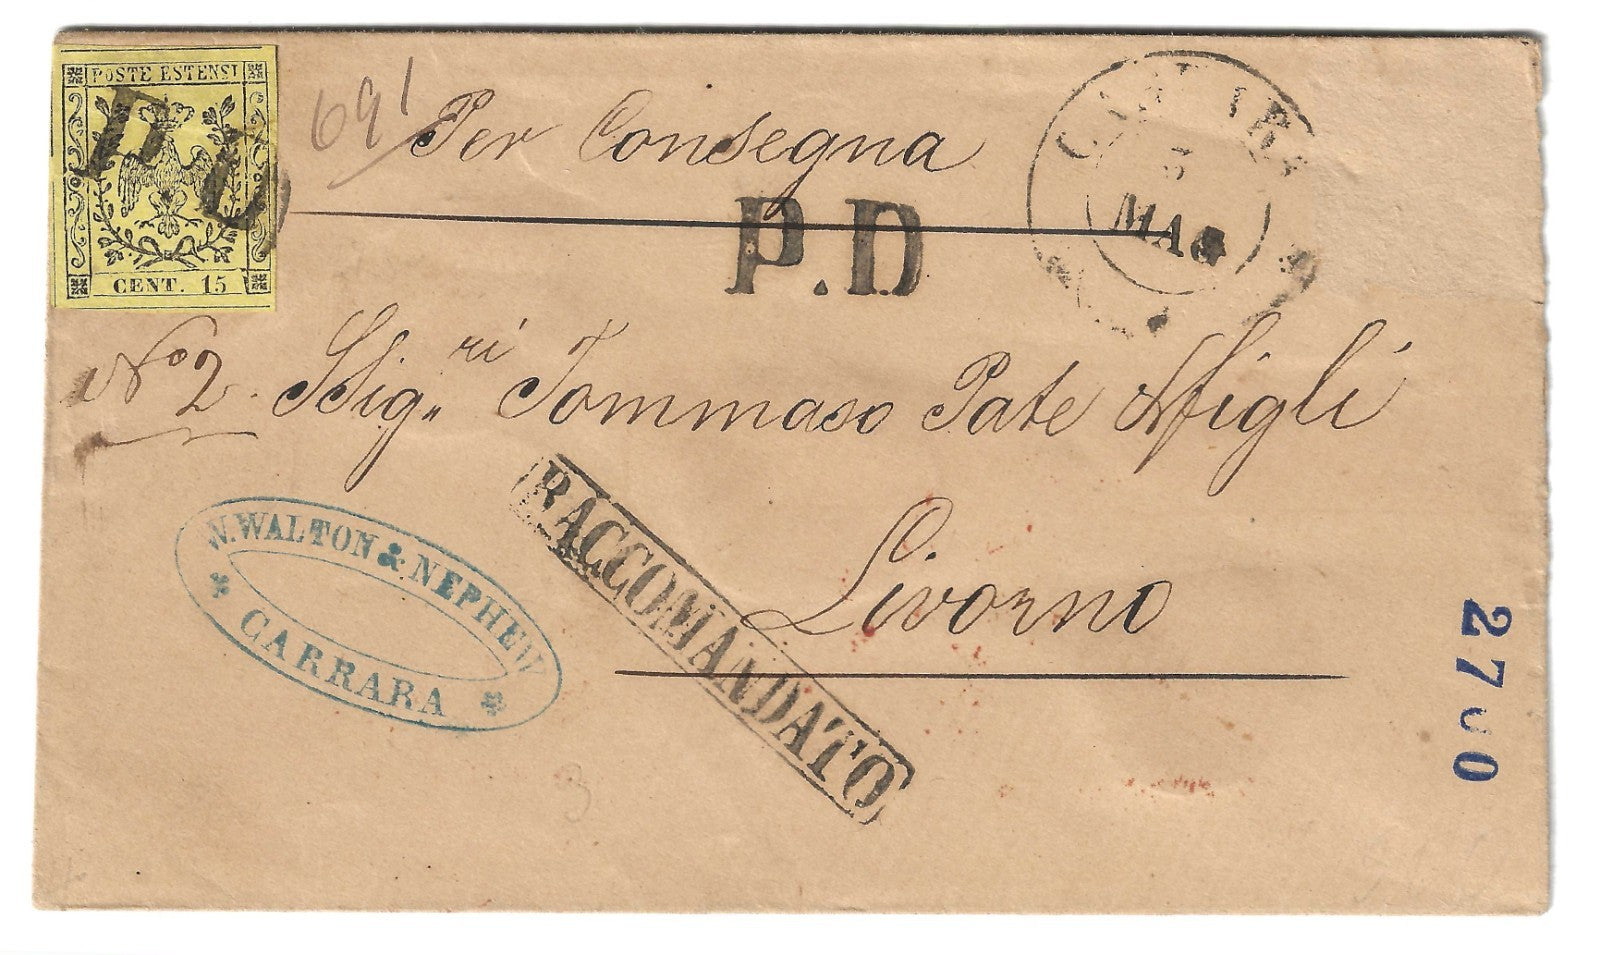 POSTE ESTENSI
CENT. 15
P.D
691
Per Consegna
P.D
5
MAG
No 2. SSig.ri Tommaso Pate & figli
Livorno
RACCOMANDATO
W. WALTON & NEPHEW
CARRARA
2700